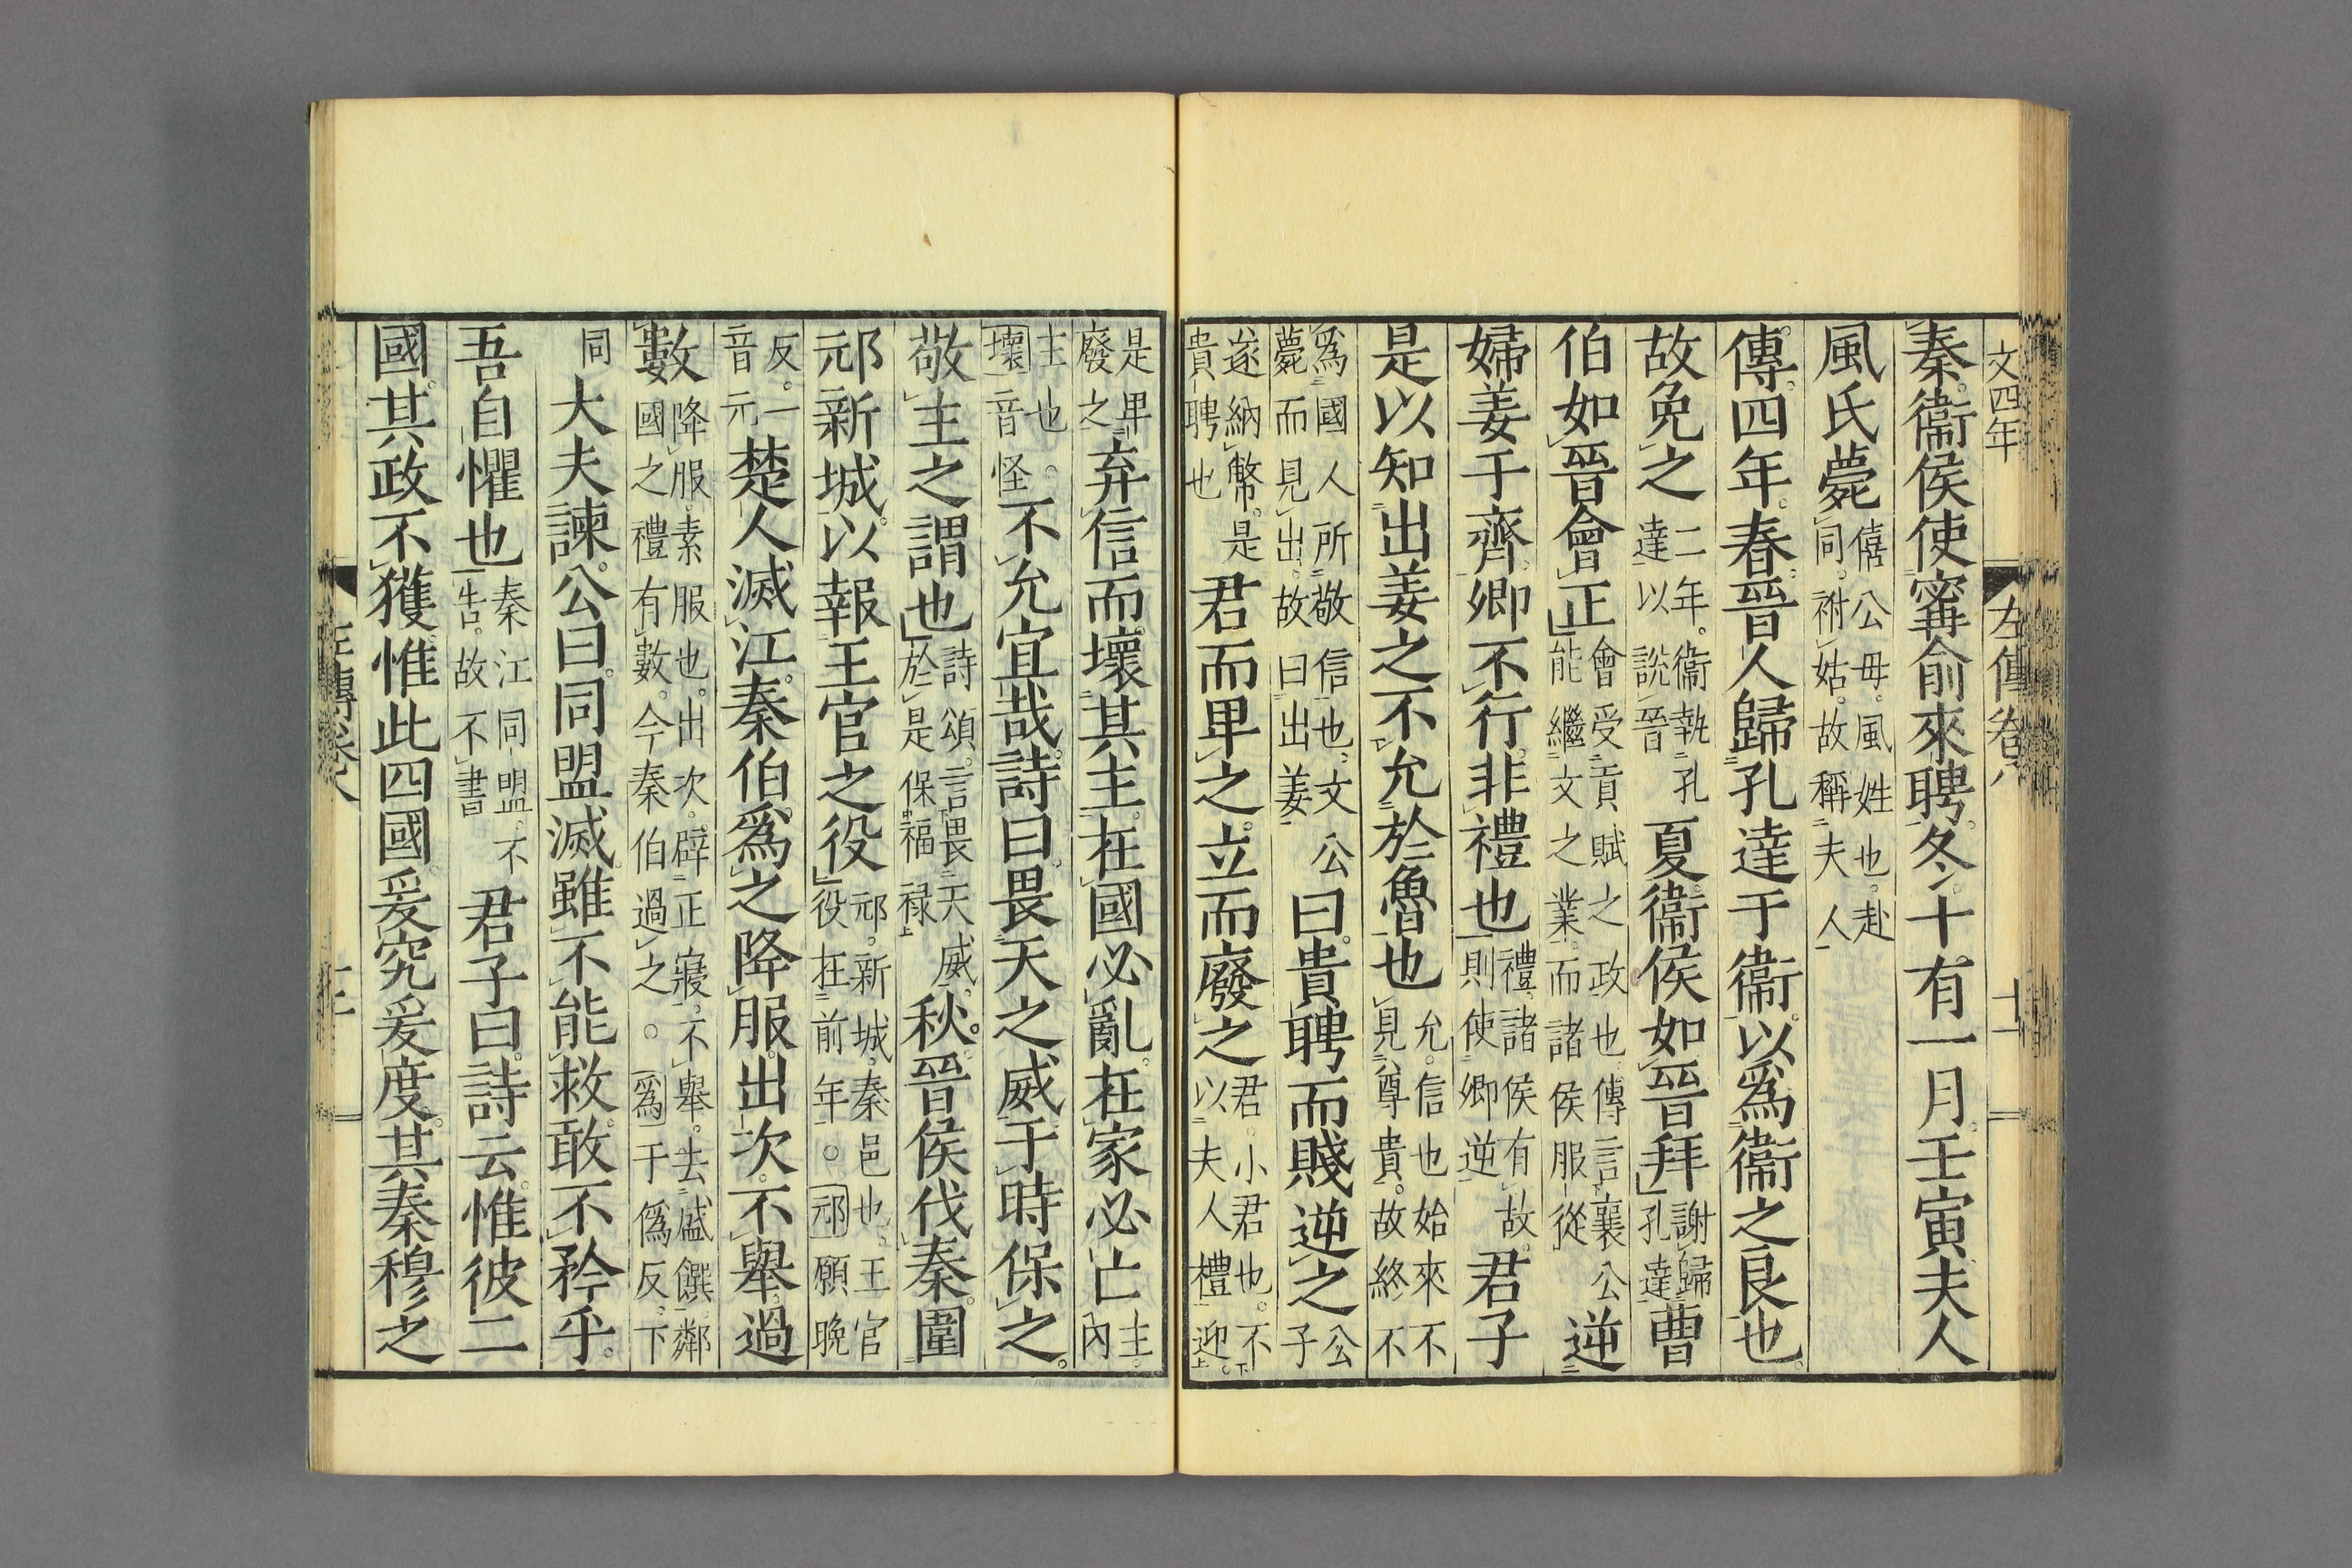 文四年　左傳卷八　十一
秦。衞侯使寗俞來聘。冬。十有一月。壬寅。夫人
風氏薨僖公母。風姓也。赴同。祔姑。故稱夫人
傳。四年。春。晉人歸孔達于衞。以爲衞之良也。
故免之二年。衞執孔達以說晉夏。衞侯如晉拜謝歸孔達曹
伯如晉會正會受貢賦之政也。傳言襄公能繼文之業。而諸侯服從逆
婦姜于齊。卿不行。非禮也禮。諸侯有故。則使卿逆君子
是以知出姜之不允於魯也允。信也。始來不見尊貴。故終不
爲國人所敬信也。文公薨而見出。故曰出姜曰。貴聘而賤逆之公子
遂納幣。是貴聘也君而卑之。立而廢之君。小君也。不以夫人禮迎。
是卑廢之弃信而壞其主。在國必亂。在家必亡主。內
主也。壞音怪不允宜哉。詩曰。畏天之威。于時保之。
敬主之謂也詩頌。言畏天威。於是保福祿秋。晉侯伐秦。圍
邧新城。以報王官之役邧。新城。秦邑也。王官役在前年。○邧願晚
反。一音元楚人滅江。秦伯爲之降服。出次。不舉。過
數降服。素服也。出次。辟正寢。不舉。去盛饌。鄰國之禮有數。今秦伯過之○爲于僞反。下
同大夫諫。公曰。同盟滅。雖不能救。敢不矜乎。
吾自懼也秦江同盟。不告。故不書君子曰。詩云。惟彼二
國。其政不獲。惟此四國。爰究爰度。其秦穆之